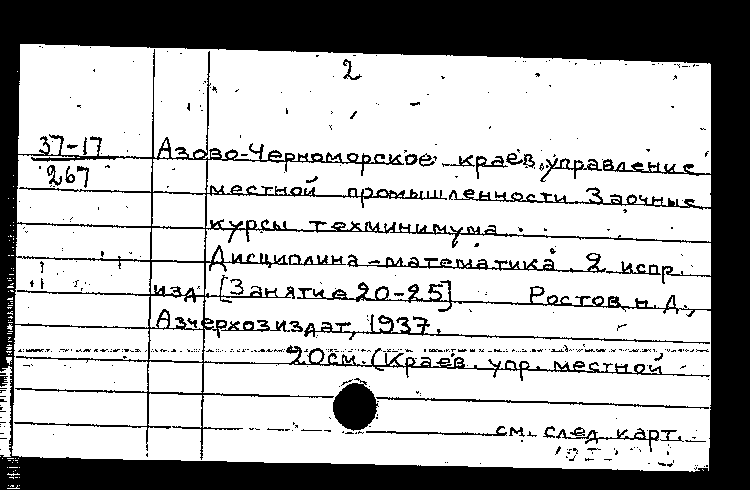 2
37-17
267
Азово-Черноморское краев. управление
местной промышленности Заочные
курсы техминимума.
Дисциплина - математика. 2 испр.
изд. [Занятие 20-25] Ростов н. Д.,
Азчерхозиздат, 1937.
20см. (Краев. упр. местной
см. след. карт.